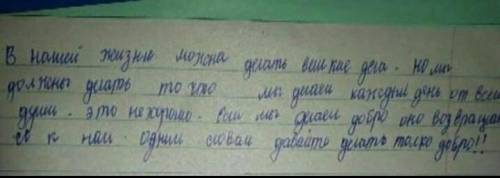 В нашей жизни можна делать великие дела. но мы
должны делать то что мы делаем каждый день от всей
души. это не хорошо. если мы делаем добро оно возвращает
ся к нам. одним словам давайте делать толко добро!!